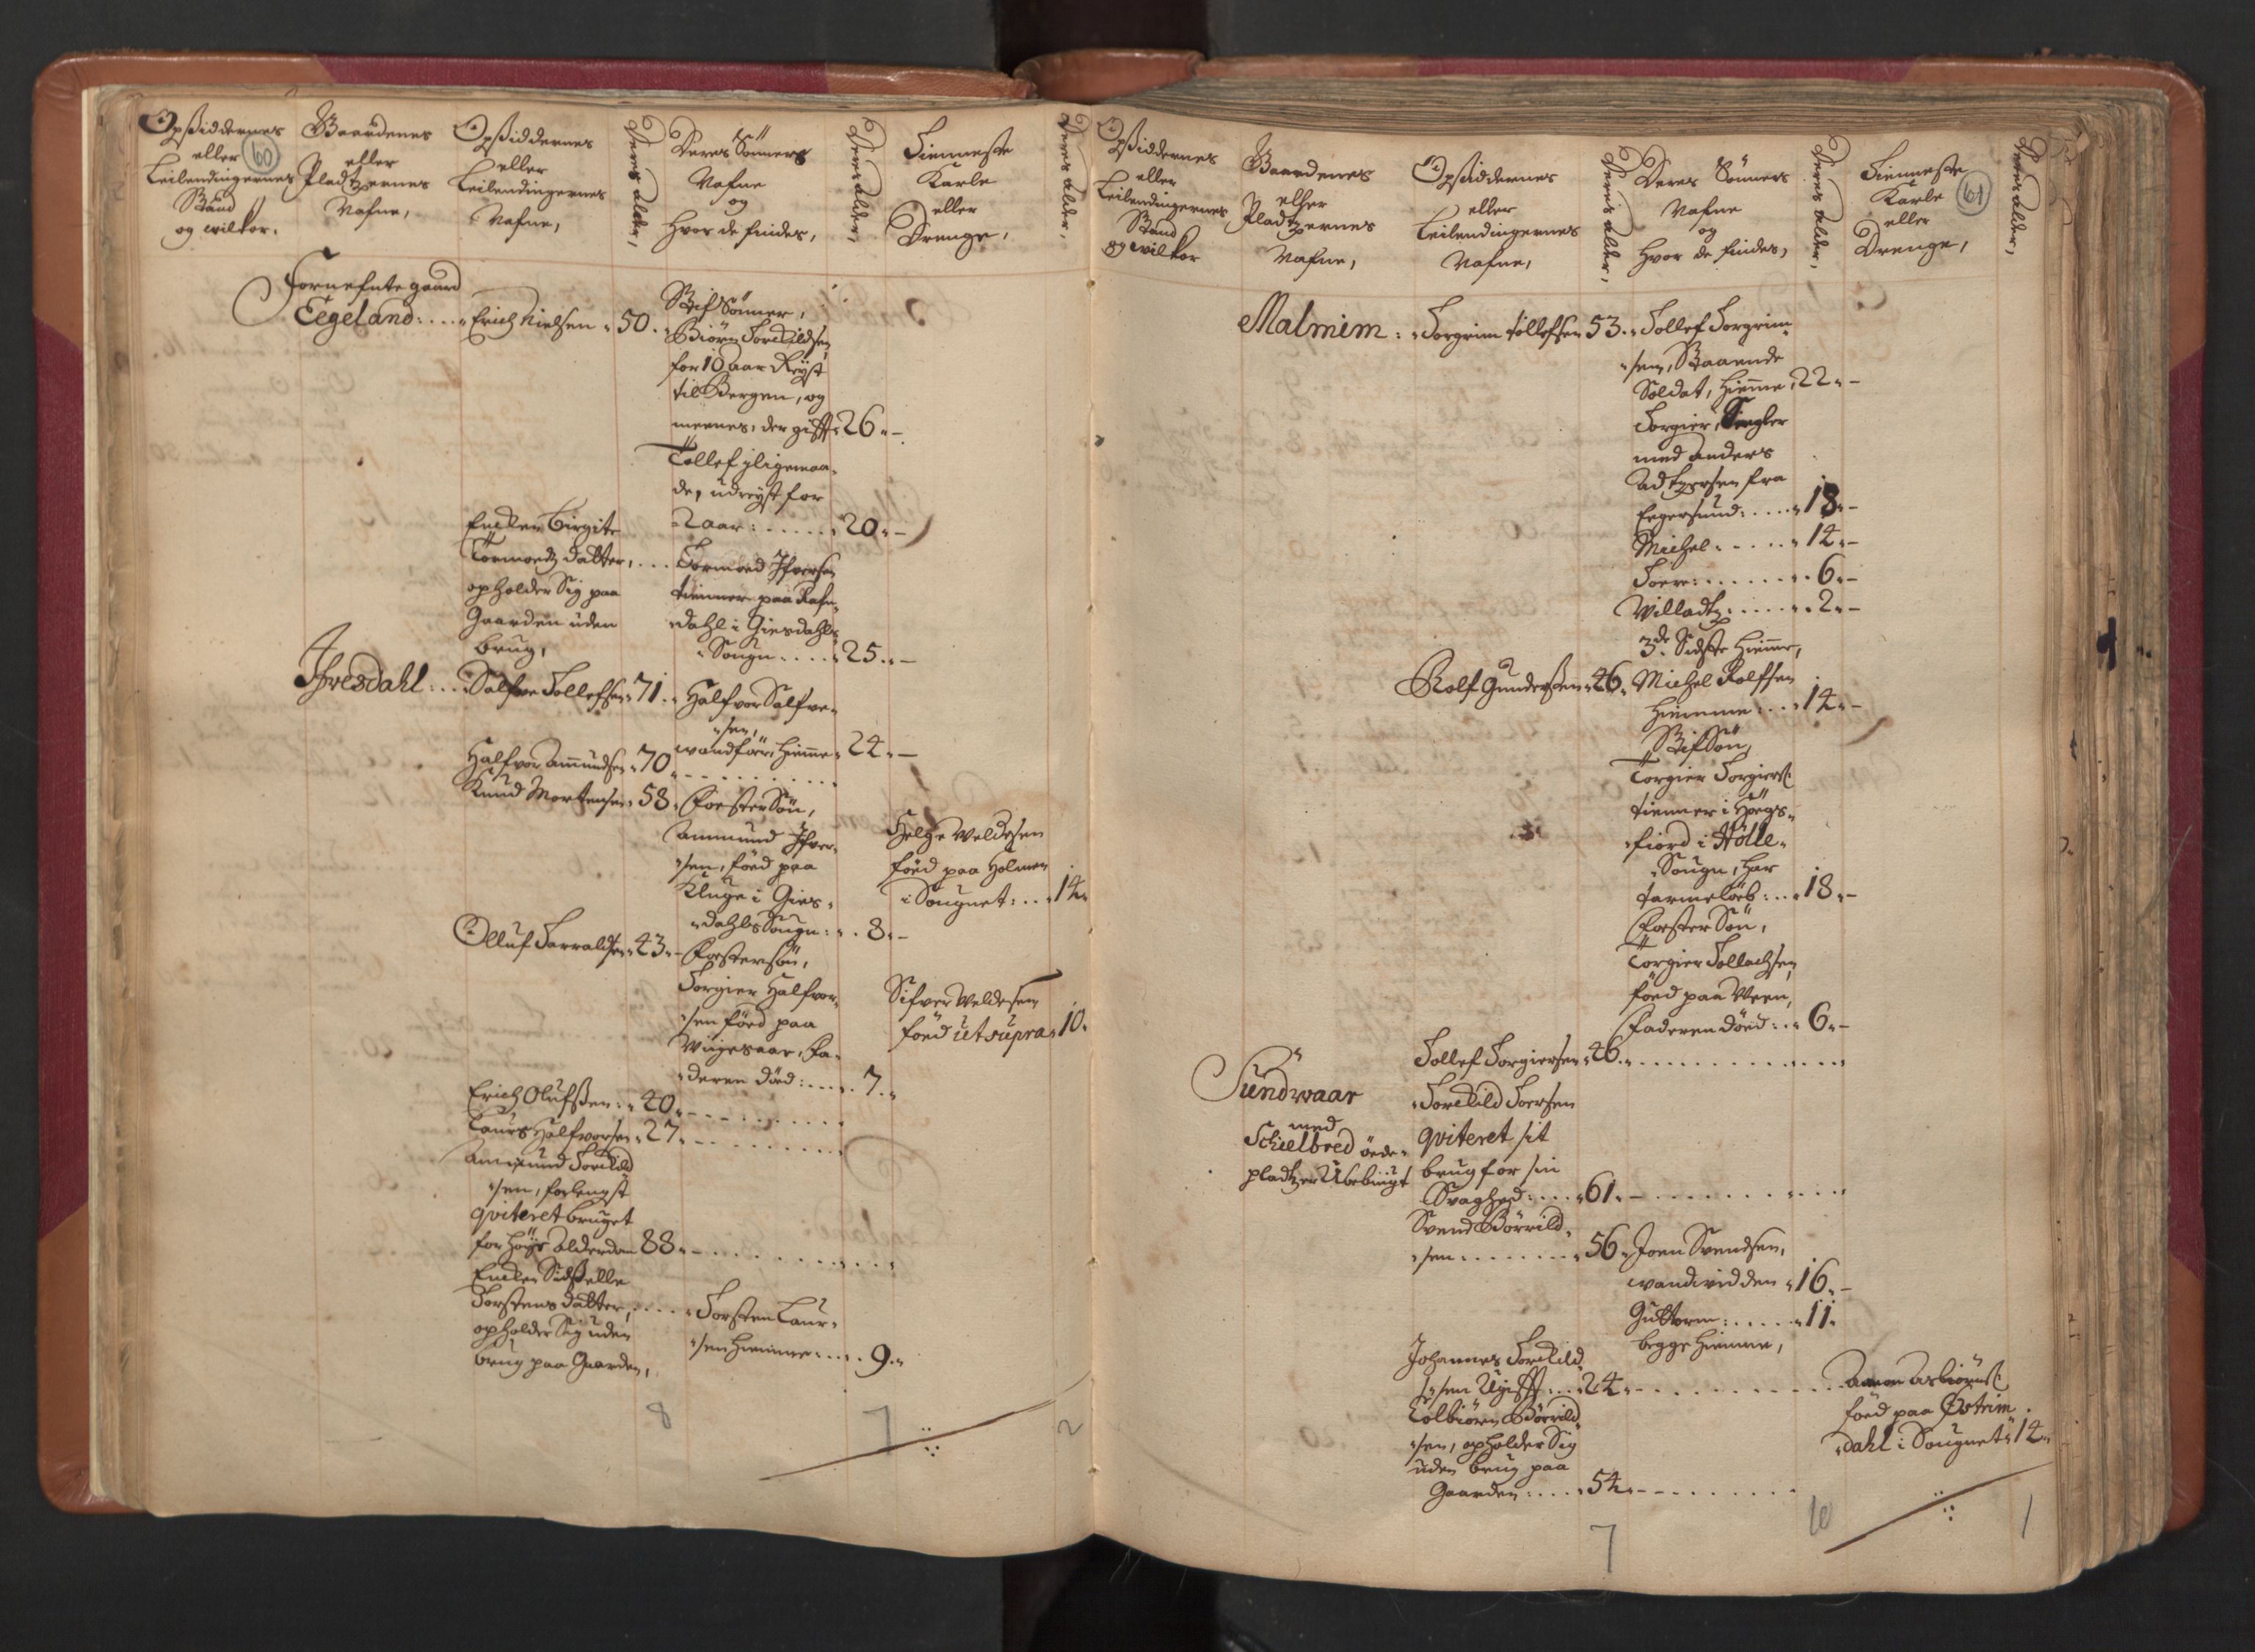 60
Opsiddernes
eller
Leilendingernes
Stand
og wilkor.
Gaardenes
eller
Pladtzernes
Nafne,
Opsiddernes
eller
Leilendingernes
Nafne,
Deres alder,
Deres Sönners
Nafne
og
hvor de findes,
Deres alder,
Tienneste
Karle
eller
Drenge,
Deres alder,
Fornefnte gaard
Eegeland: ... Erich Nielsen 50.
Stif Sönner,
Biörn Torckildsen
for 10 aar Reyst
til Bergen, og
meenes, der gifft 26.
Tollef iligemaa-
de, udreyst for
2 aar: ..... 20.
Encken Birgite
Tormoedz datter, ...
opholder Sig paa
Gaarden uden
brug,
Tormoed Ifversen
tienner paa Rafn-
dahl i Giesdahls
Sougn .... 25.
Ifvesdahl: ... Salfve Tollefsen 71.
Halfvor Salfve-
sen,
wandför, hiemme 24.
Halfvor Ammundsen 70 ..........
Knud Mortensen 58.
Foester Sön,
Ammund Ifver-
sen, föed paa
Kluge i Gies-
dahls Sougn: .. 8.
Helge Weldesen
föed paa Holmen
i Sougnet: ... 14.
Olluf Tarraldsen 43.
Fostersön,
Torgier Halfvor-
sen föed paa
Wigesaae, Fa-
deren död: .... 7.
Sifver Weldesen
foed ut supra 10.
Erich Olufssen: 40 ..........
Laurs Halfvorsen 27 ..........
Ammund Torckild
sen, forlengst
qviteret bruget
for höye Alderdom 88 ..........
Encken Sidselle
Torstens datter, ....
opholder Sig uden
brug paa Gaarden,
Torsten Laur-
sen hiemme: ... 9.
8
7
2
61
Opsiddernes
eller
Leilendingernes
Stand
og wilkor
Gaardenes
eller
Pladtzernes
Nafne,
Opsiddernes
eller
Leilendingernes
Nafne,
Deres alder,
Deres Sönners
Nafne
og
hvor de findes,
Deres alder,
Tienneste
Karle
eller
Drenge,
Deres alder,
Malmim: Torgrim Tollefsen 53.
Tollef Torgrim-
sen, Staaende
Soldat, hiemme 22.
Torgier, Seygler
med Anders
Adtzersen fra
Eegersund: .... 18.
Michel: .... 14.
Toere: ...... 6.
Willadtz: .... 2.
3de Sidste hiemme,
Rolf Gunderssen 46.
Michel Rolfsen
hiemme: ... 14.
Stif Sön,
Torgier Torgiers:
tienner i Högs-
fiord i Hölle-
Sougn, har
tarmelöeb: .. 18.
Foster Sön,
Torgier Tollachsen
föed paa Veen,
Faderen döed: .. 6.
Tollef Torgiersen 46. ..........
Sundvaar
med
Schielbred öede-
pladtz er Ubebiugt
Torckild Toersen
qviteret sit
brug for sin
Svaghed: .... 61. ..........
Svend Börrild-
sen ........ 56.
Joen Svendsen,
wandvidden 16.
Guttorm: ..... 11.
begge hiemme,
Johannes Torckild
sen Ugifft: ... 24. ..........
Aanon Asbiörns:
föed paa Östrim-
dahl i Sougnet 14.
Tolbiören Börrild
sen, opholder Sig
uden brug paa
Gaarden: .... 54. ..........
7
10
1